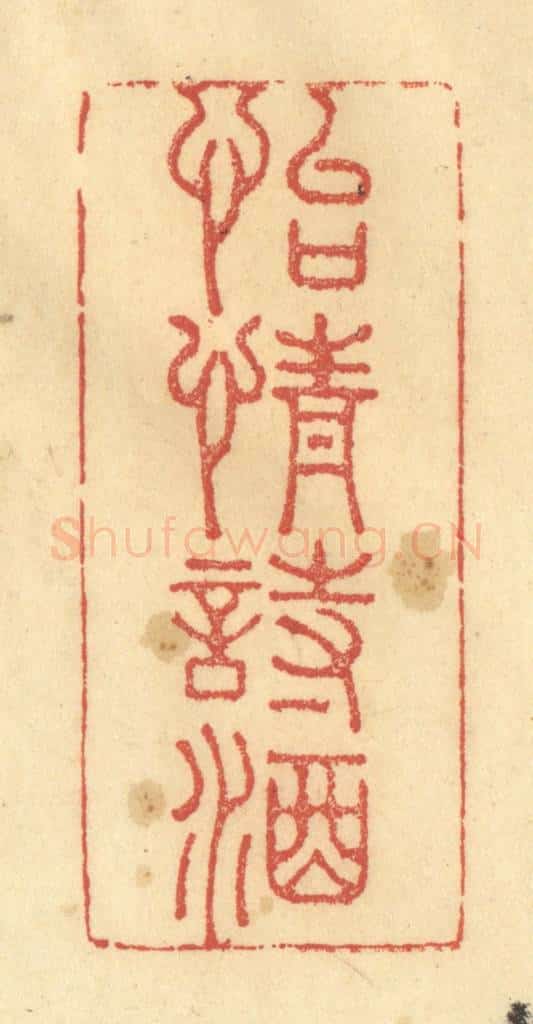 怡情詩酒
Shufawang.CN